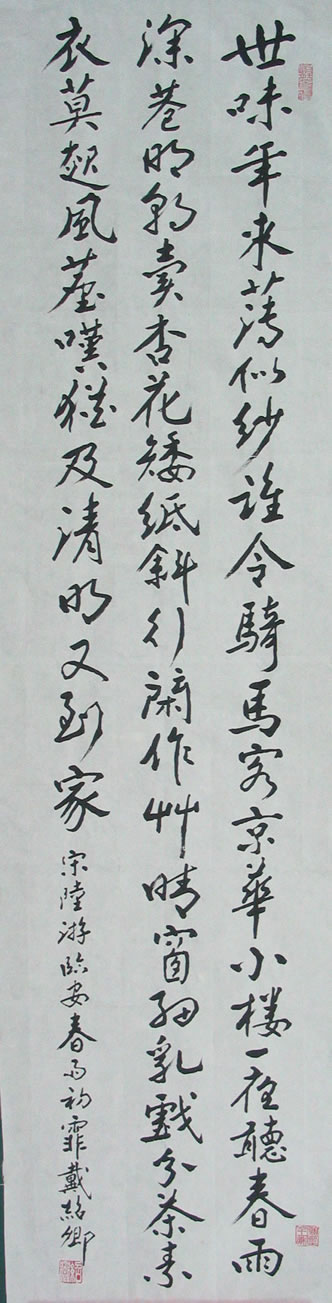 世味年来薄似紗誰令騎馬客京華小楼一夜聽春雨
深巷明朝賣杏花矮紙斜行閑作艸晴窗細乳戲分茶素
衣莫起風塵嘆猶及清明又到家
宋陸游臨安春雨初霽戴紹卿